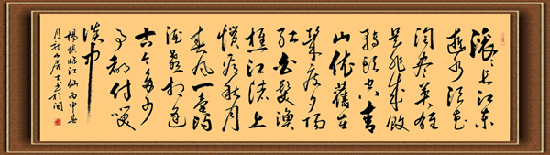 滚々长江东
逝水浪花
淘尽英雄
是非成败
转头空青
山依舊在
幾度夕阳
红白髮渔
樵江渚上
惯看秋月
春风一壶浊
酒喜相逢
古今多少
事都付笑
谈中
杨慎临江仙丙申